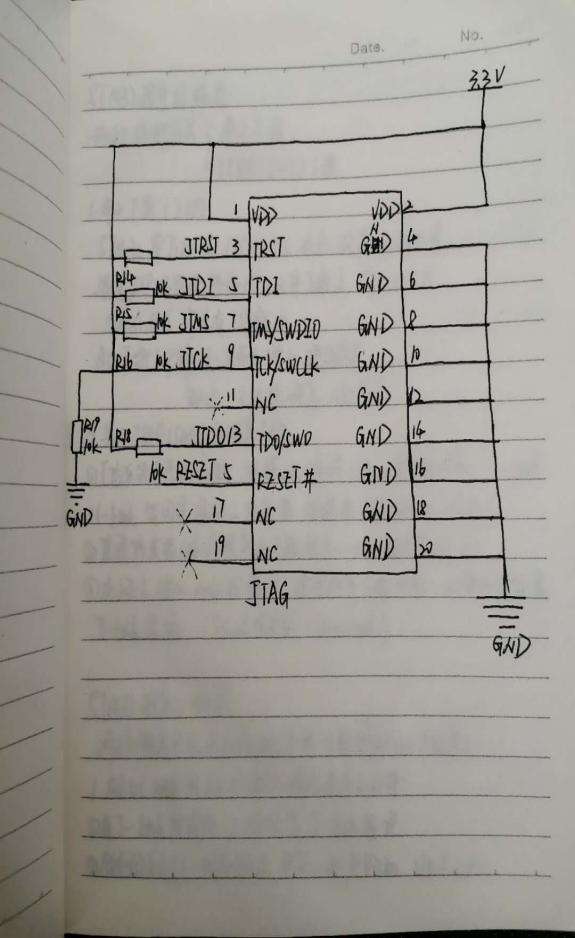 Date.
No.
3.3V
1 VDD VDD 2
JTRST 3 TRST GND 4
R14 10k JTDI 5 TDI GND 6
R15 10k JTMS 7 TMS/SWDIO GND 8
R16 10k JTCK 9 TCK/SWCLK GND 10
11 NC GND 12
R19 10k
R18 JTDO 13 TDO/SWO GND 14
10k RESET 5 RESET# GND 16
GND
17 NC GND 18
19 NC GND 20
JTAG
GND